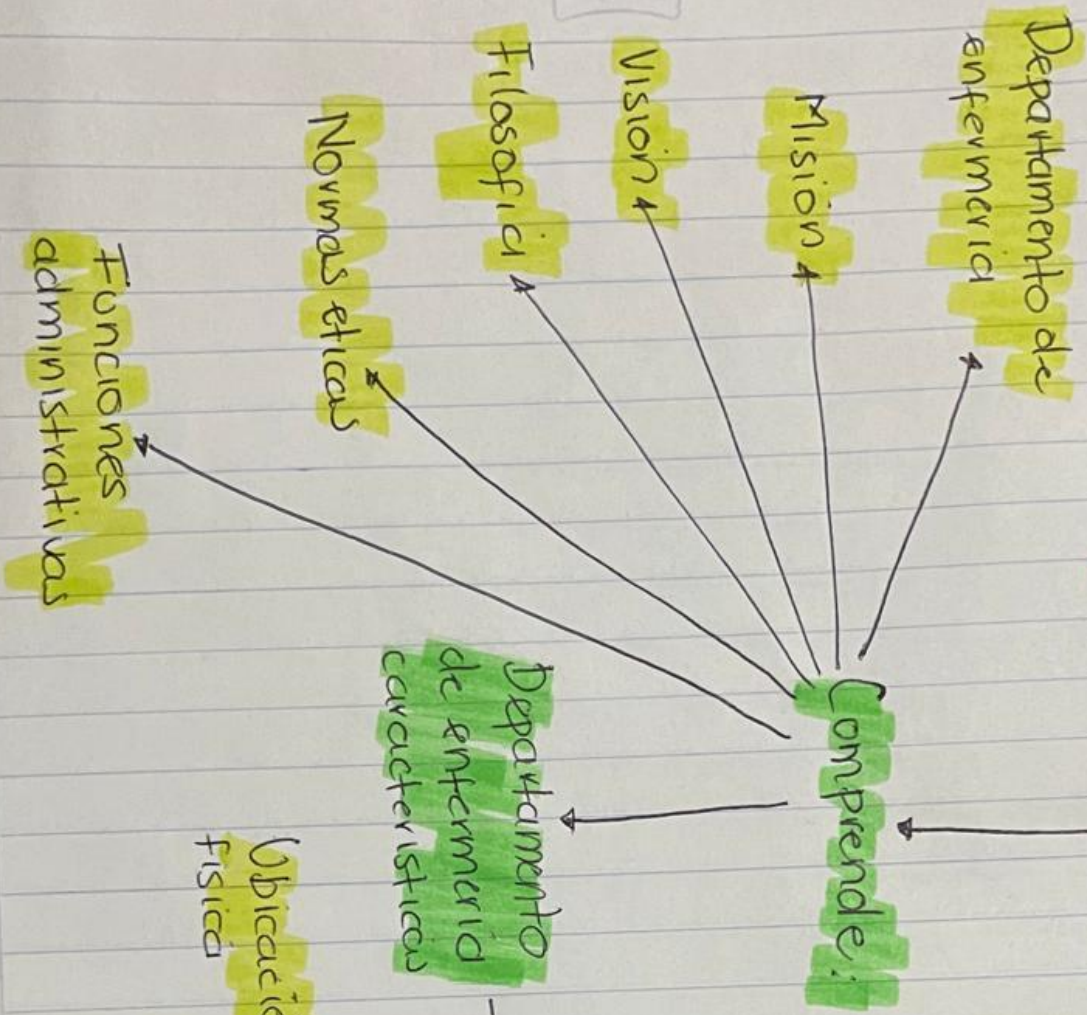 Comprende:
Departamento de
enfermeria
Misión
Visión
Filosofia
Normas eticas
Funciones
administrativas
Departamento
de enfermeria
caracteristicas
fisica